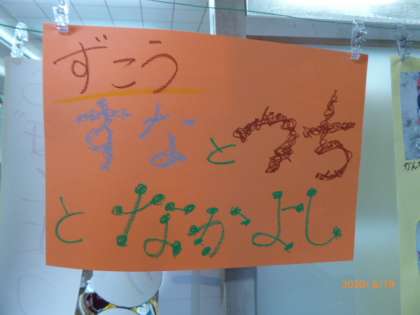 ずこう
すなとつち
となかよし